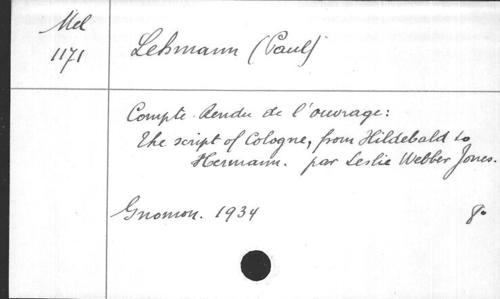 Mel
1171
Lehmann (Paul)
Compte-Rendu de l'ouvrage:
The script of Cologne, from Hildebald to
Hermann. par Leslie Webber Jones.
Gnomon. 1934
8°